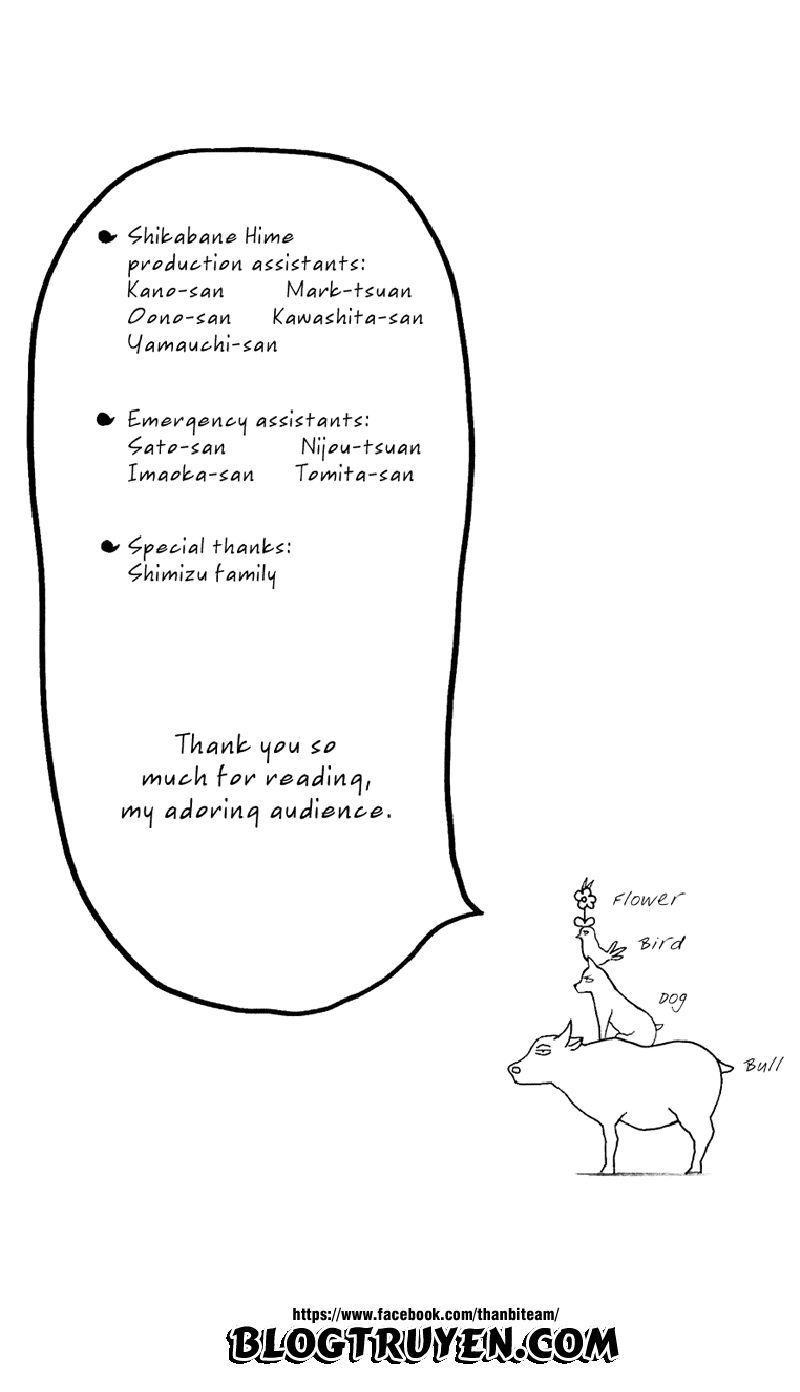 Shikabane Hime
production assistants:
Kano-san Mark-tsuan
Oono-san Kawashita-san
Yamauchi-san
Emergency assistants:
Sato-san Nijou-tsuan
Imaoka-san Tomita-san
Special thanks:
Shimizu family
Thank you so
much for reading,
my adoring audience.
Flower
Bird
Dog
Bull
https://www.facebook.com/thanbiteam/
BLOGTRUYEN.COM